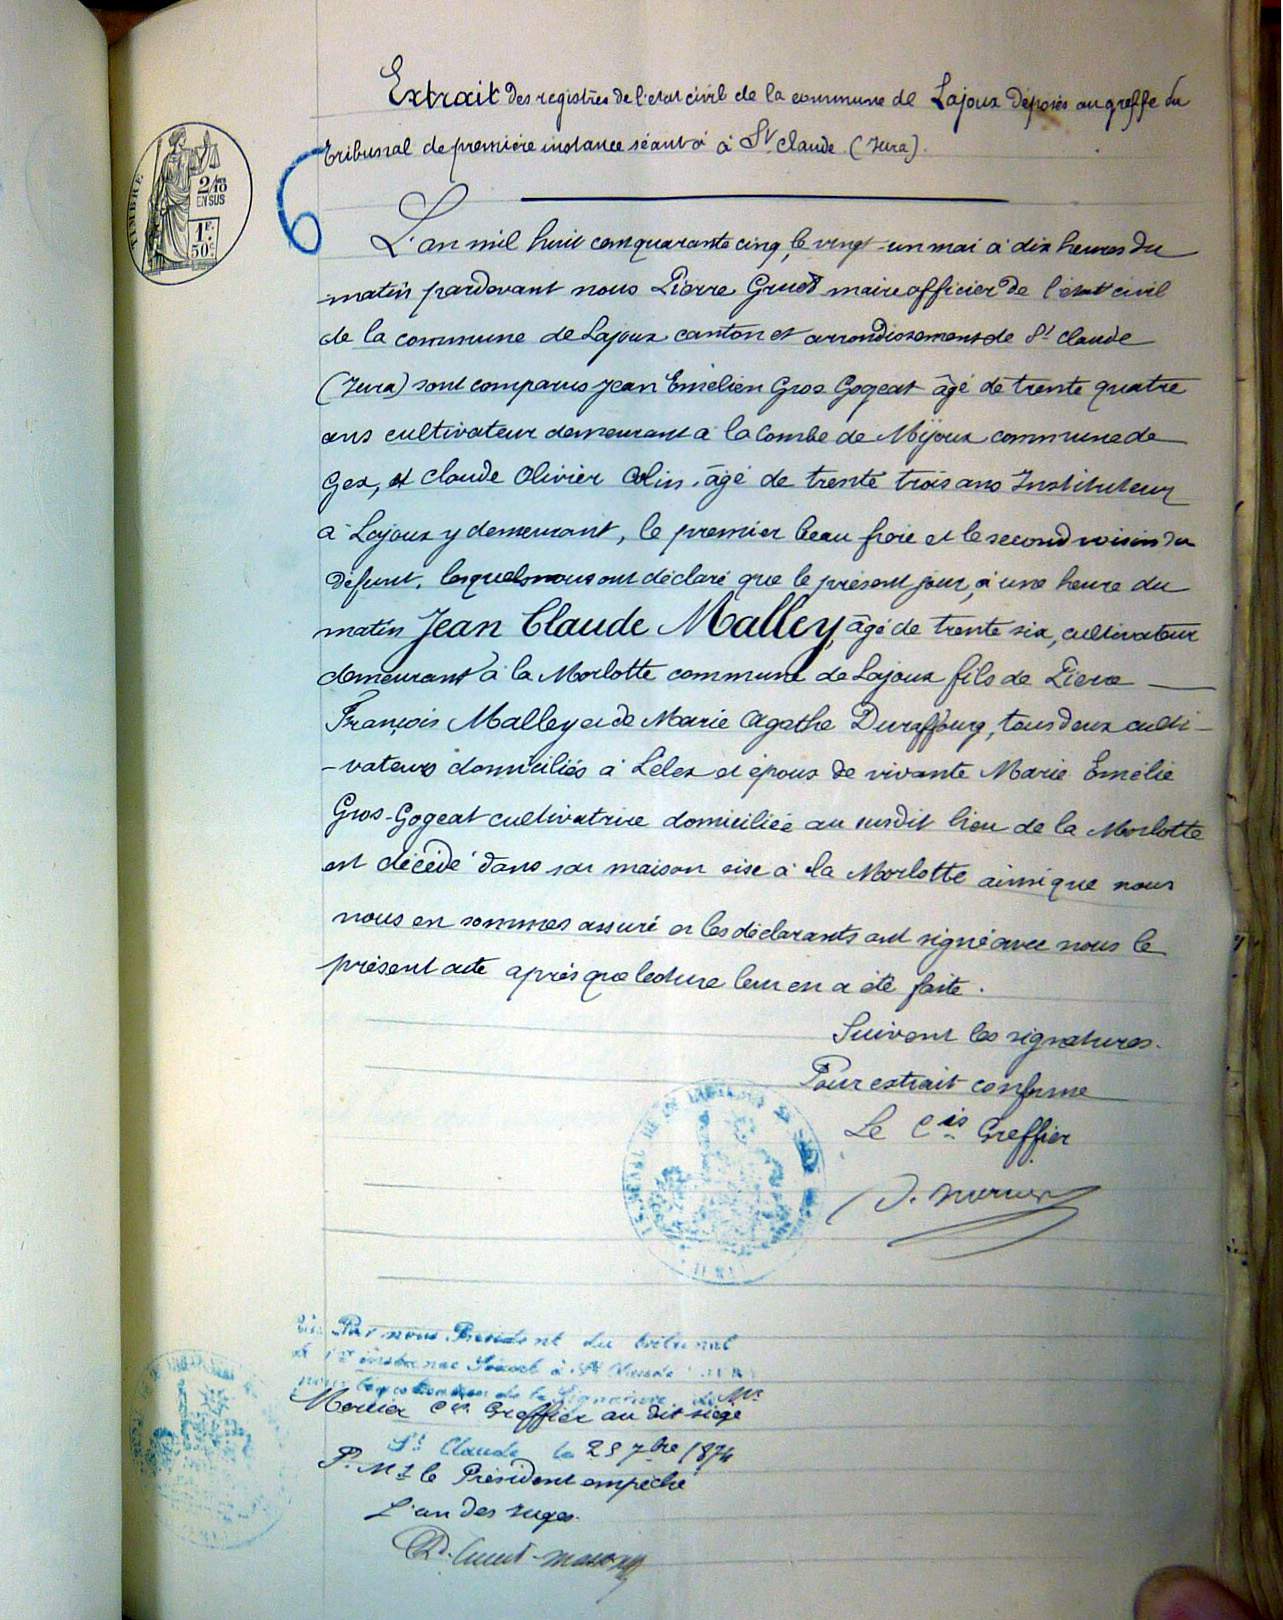 Extrait des registres de l'etat civil de la commune de Lajoux déposés au greffe du
tribunal de première instance séant à à St Claude (Jura).
TIMBRE
2/10
EN SUS
1F.
50c.
6
L'an mil huit cent quarante cinq, le vingt-un mai à dix heures du
matin pardevant nous Pierre Gruet maire officier de l'état civil
de la commune de Lajoux canton et arrondissement de St Claude
(Jura) sont comparus Jean Emélien Gros Gogeat âgé de trente quatre
ans cultivateur demeurant à la Combe de Mijoux commune de
Gex, et Claude Olivier Colin, âgé de trente trois ans Instituteur
à Lajoux y demeurant, le premier beau frère et le second voisin du
défunt, lesquels nous ont déclaré que le présent jour, à une heure du
matin Jean Claude Malley, âgé de trente six, cultivateur
demeurant à la Morlotte commune de Lajoux fils de Pierre
François Malley et de Marie Agathe Duraffourg, tous deux culti-
-vateurs domiciliés à Lélex et époux de vivante Marie Emélie
Gros-Gogeat cultivatrice domiciliée au susdit lieu de la Morlotte
est décédé dans sa maison sise à la Morlotte ainsi que nous
nous en sommes assuré et les déclarants ont signé avec nous le
présent acte après que lecture leur en a été faite.
Suivent les signatures.
Pour extrait conforme
Le Cis Greffier
Par nous Président du tribunal
de 1re instance Séant à St Claude
pour légalisation de la Signature de Mr
Mercier Cis Greffier au dit siège
St Claude le 25 7bre 1874
P. Mr le Président empêché
L'un des Juges.